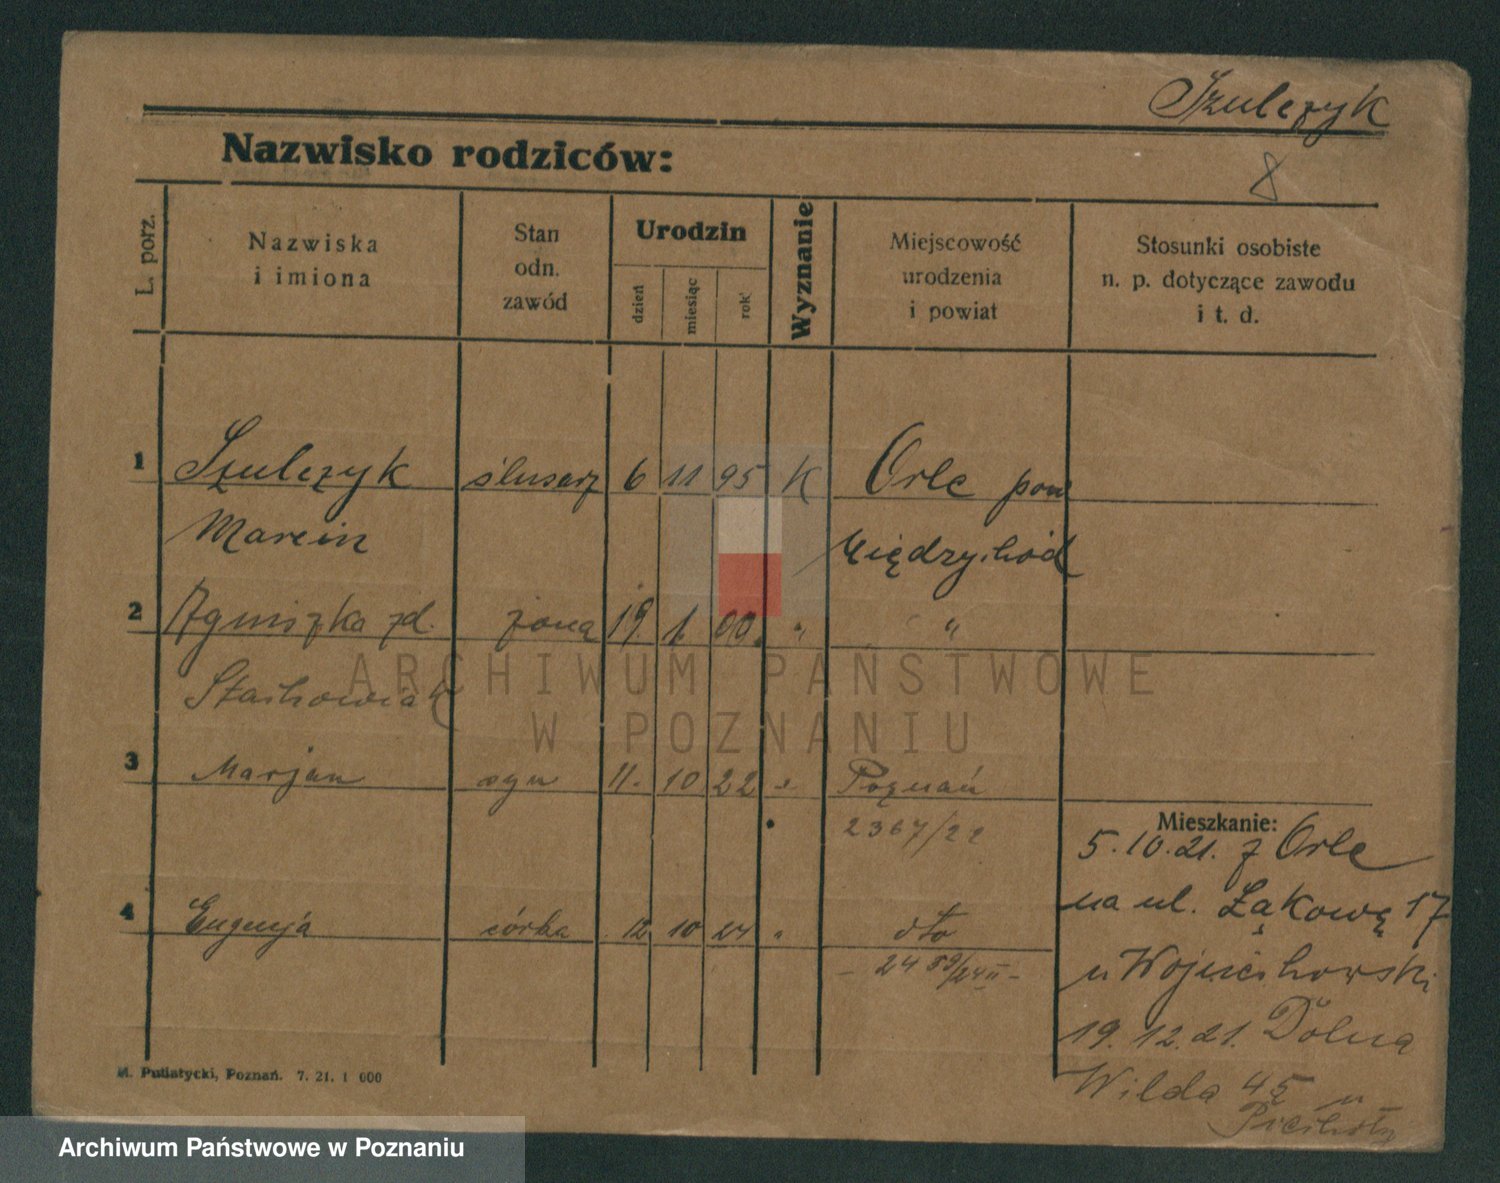 Szulczyk
Nazwisko rodziców:
8
L. porz.
Nazwiska
i imiona
Stan
odn.
zawód
Urodzin
dzień
miesiąc
rok
Wyznanie
Miejscowość
urodzenia
i powiat
Stosunki osobiste
n. p. dotyczące zawodu
i t. d.
1 Szulczyk ślusarz 6 11 95 K Orle pow
Marcin Międzychód
2 Agniszka zd. żona 19. 1. 00. " "
Stachowiak
ARCHIWUM PAŃSTWOWE
W POZNANIU
3 Marjan syn 11. 10 22 " Poznań
2367/22
Mieszkanie:
5.10.21. z Orle
4 Eugenja córka 12 10 24 " dto
na ul. Łąkową 17
24 /24 II
u Wojciechowski
19.12.21. Dolna
Wilda 45 u
M. Putiatycki, Poznań. 7. 21. 1 000
Archiwum Państwowe w Poznaniu